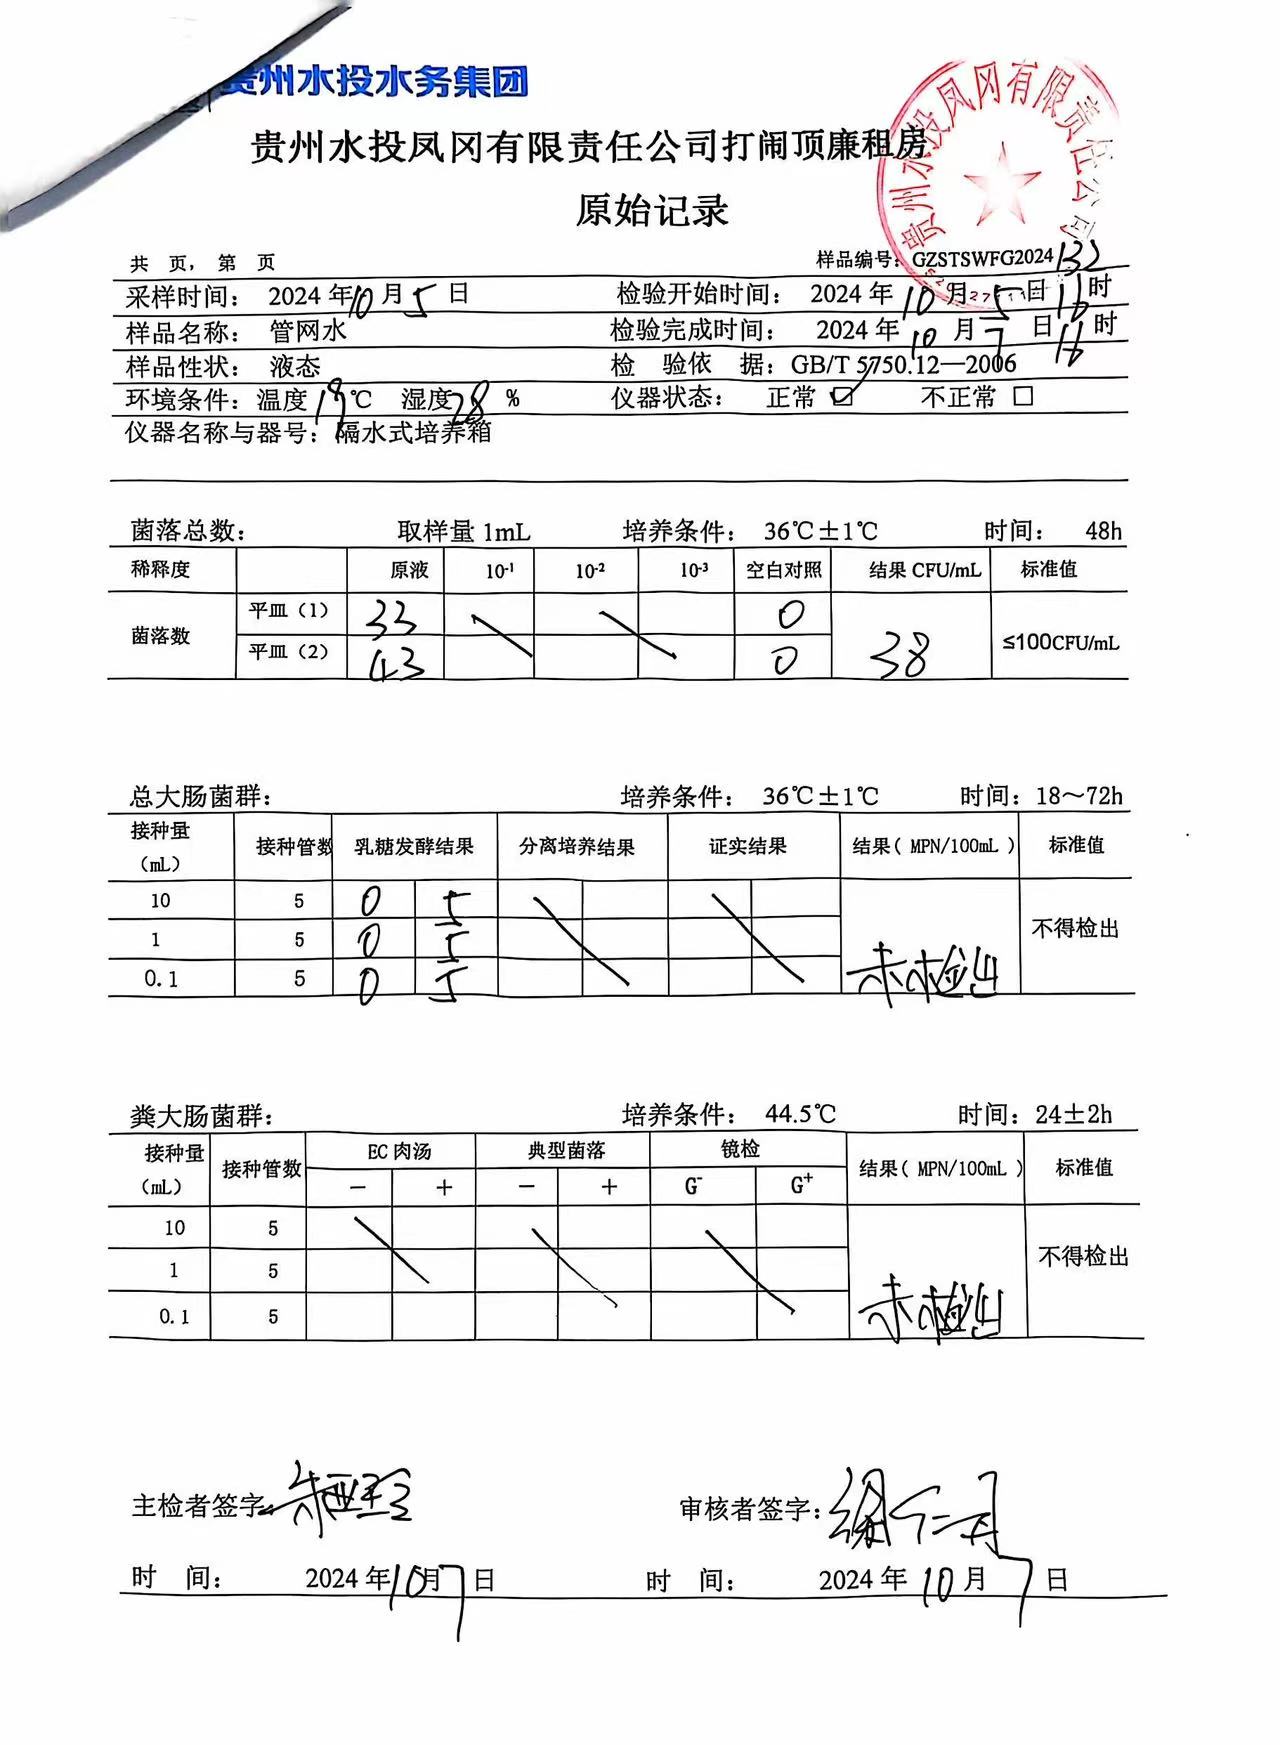 贵州水投水务集团
贵州水投凤冈有限责任公司
贵州水投凤冈有限责任公司打闹顶廉租房
原始记录
共 页， 第 页 样品编号：GZSTSWFG2024132
采样时间： 2024 年10月5日 检验开始时间： 2024 年10月5日16时
样品名称： 管网水 检验完成时间： 2024 年10月7日16时
样品性状： 液态 检 验依 据：GB/T 5750.12—2006
环境条件：温度19℃ 湿度28% 仪器状态： 正常 ☑ 不正常 □
仪器名称与器号：隔水式培养箱
菌落总数： 取样量 1mL 培养条件： 36℃±1℃ 时间： 48h
稀释度 原液 10-1 10-2 10-3 空白对照 结果 CFU/mL 标准值
菌落数 平皿（1） 33 0 38 ≤100CFU/mL
平皿（2） 43 0
总大肠菌群： 培养条件： 36℃±1℃ 时间：18～72h
接种量（mL） 接种管数 乳糖发酵结果 分离培养结果 证实结果 结果（ MPN/100mL ） 标准值
10 5 0 5 未检出 不得检出
1 5 0 5
0.1 5 0 5
粪大肠菌群： 培养条件： 44.5℃ 时间：24±2h
接种量（mL） 接种管数 EC 肉汤 典型菌落 镜检 结果（ MPN/100mL ） 标准值
－ ＋ － ＋ G- G+
10 5 未检出 不得检出
1 5
0.1 5
主检者签字： 审核者签字：
时 间： 2024 年10月7日 时 间： 2024 年10月7日